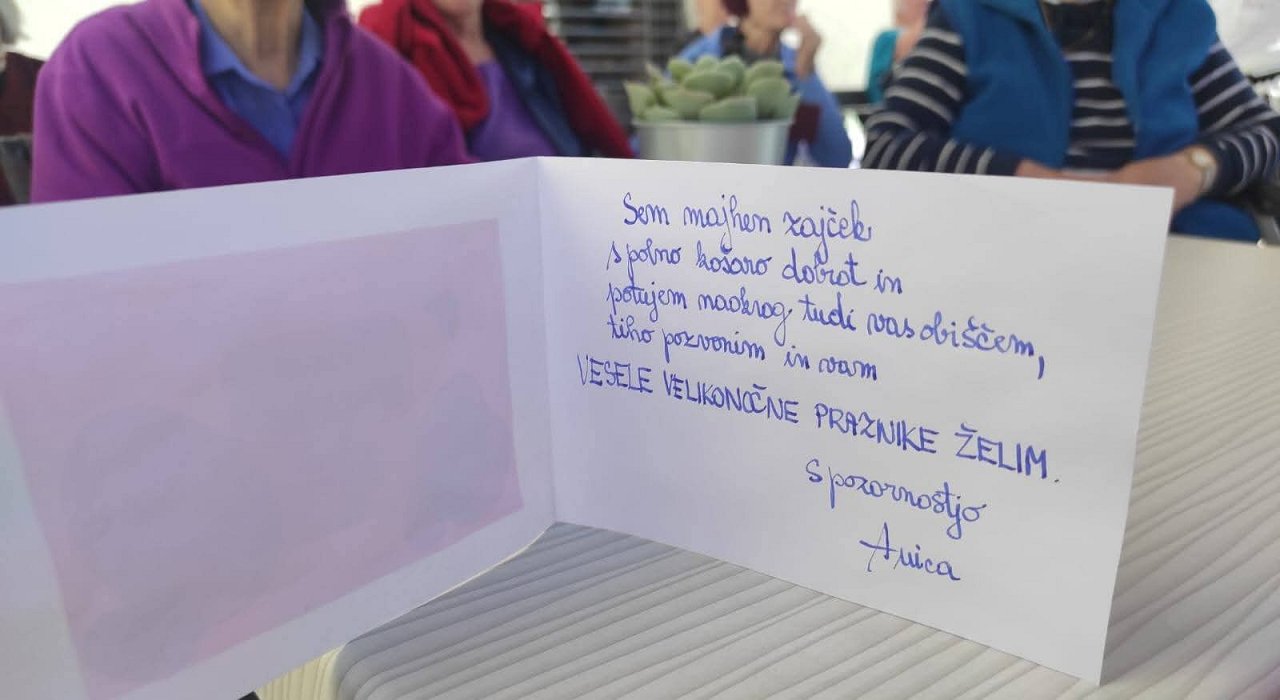 Sem majhen zajček
s polno košaro dobrot in
potujem naokrog, tudi vas obiščem,
tiho pozvonim in vam
VESELE VELIKONOČNE PRAZNIKE ŽELIM.
s pozornostjo
Anica